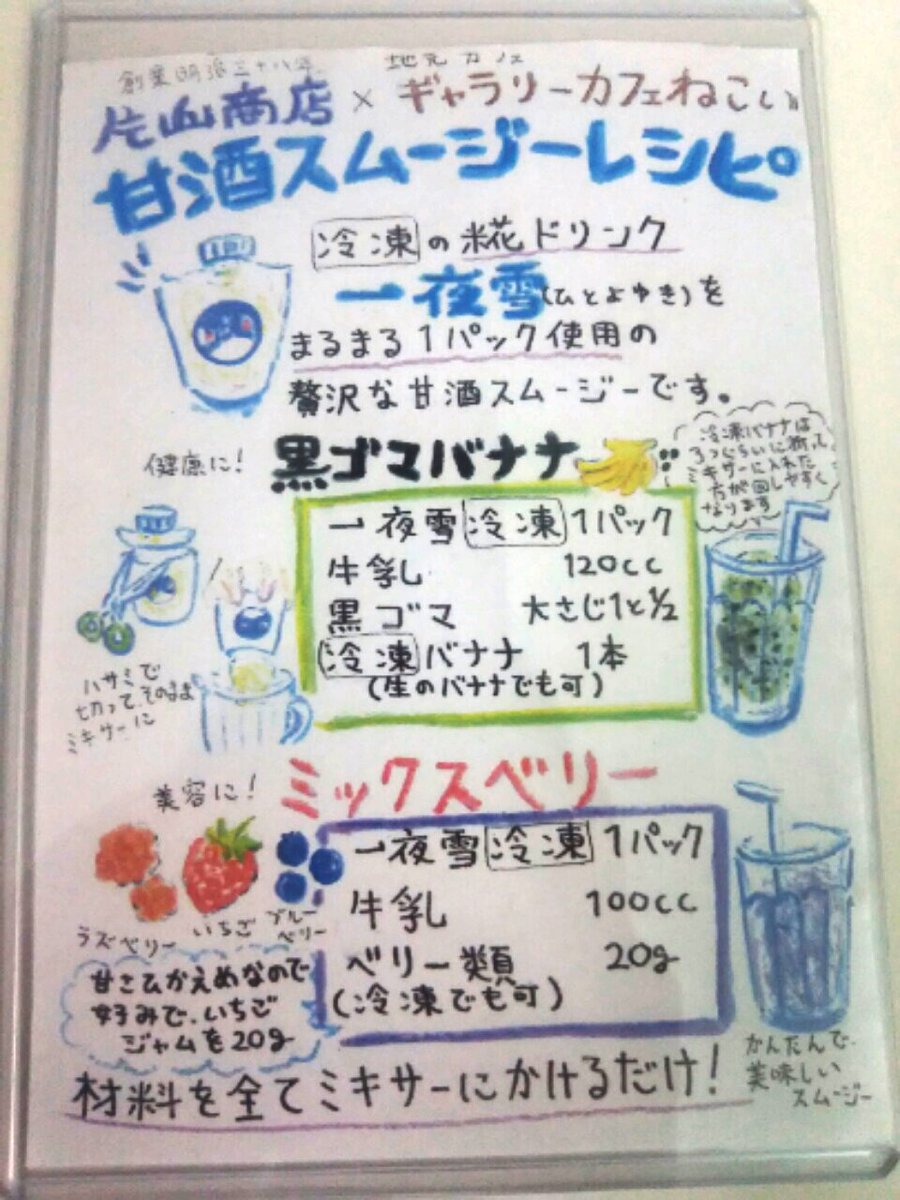 創業明治三十八年
地元カフェ
片山商店 × ギャラリーカフェねこい
甘酒スムージーレシピ
冷凍の糀ドリンク
一夜雪(ひとよゆき)を
まるまる1パック使用の
贅沢な甘酒スムージーです。
健康に!
黒ゴマバナナ
冷凍バナナは
3つくらいに折って
ミキサーに入れた
方が回しやすく
なります
一夜雪 冷凍 1パック
牛乳 120cc
黒ゴマ 大さじ1と1/2
冷凍バナナ 1本
(生のバナナでも可)
ハサミで
切って、そのまま
ミキサーに
美容に!
ミックスベリー
一夜雪 冷凍 1パック
牛乳 100cc
ベリー類 20g
(冷凍でも可)
ラズベリー
いちご
ブルー
ベリー
甘さひかえめなので
好みで、いちご
ジャムを20g
かんたんで、
美味しい
スムージー
材料を全てミキサーにかけるだけ!